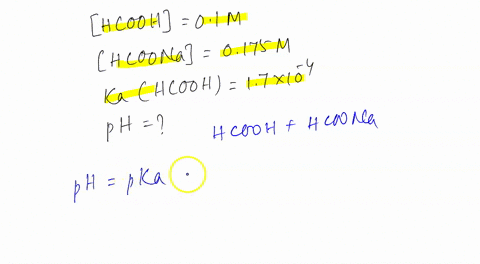 [HCOOH] = 0.1 M
[HCOONa] = 0.175 M
Ka (HCOOH) = 1.7×10⁻⁴
pH = ?
HCOOH + HCOONa
pH = pKa